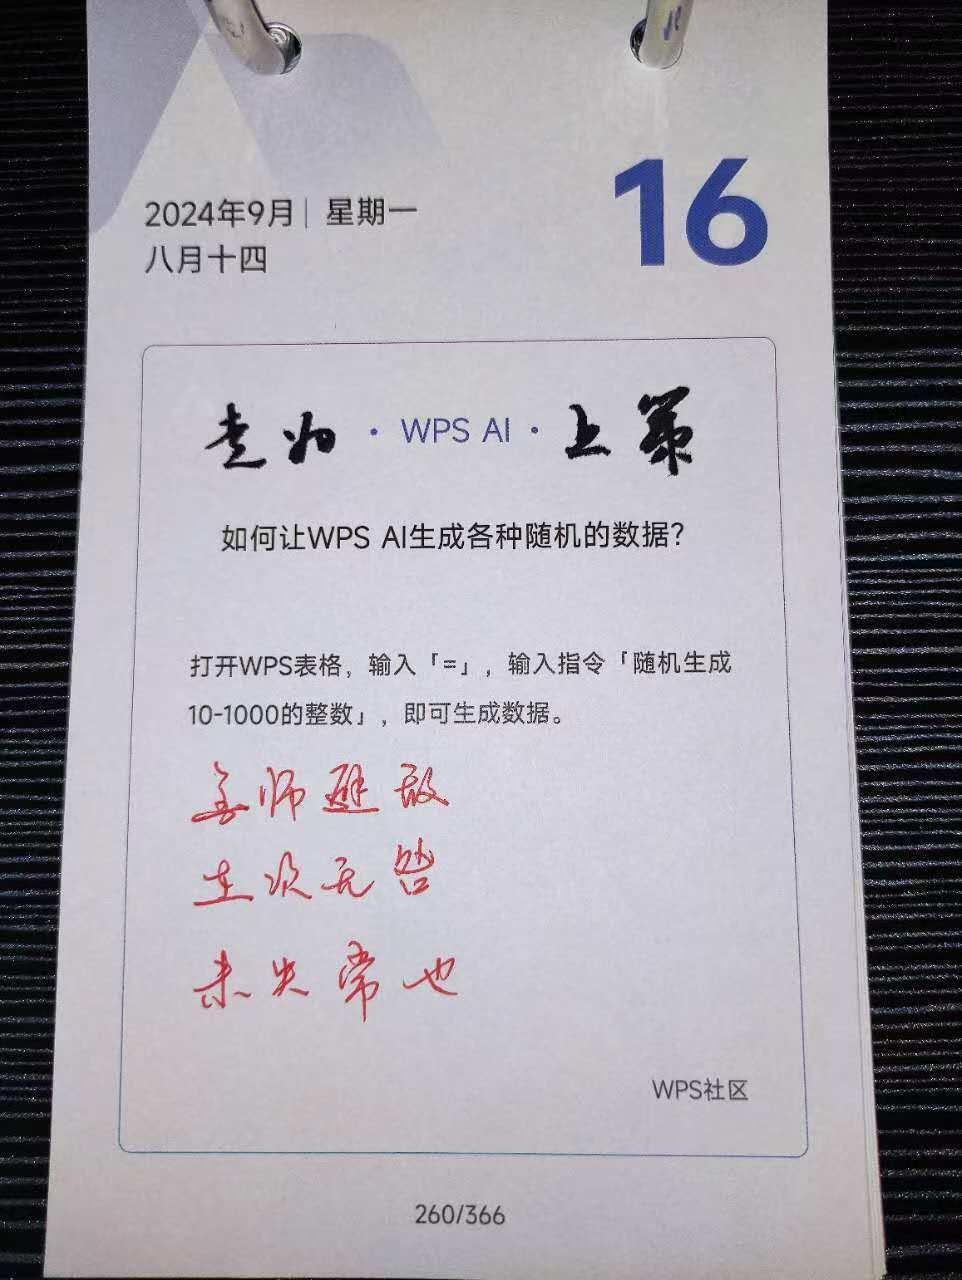 2024年9月 | 星期一
八月十四
16
走为 · WPS AI · 上策
如何让WPS AI生成各种随机的数据?
打开WPS表格，输入「=」，输入指令「随机生成
10-1000的整数」，即可生成数据。
全师避敌
左次无咎
未失常也
WPS社区
260/366